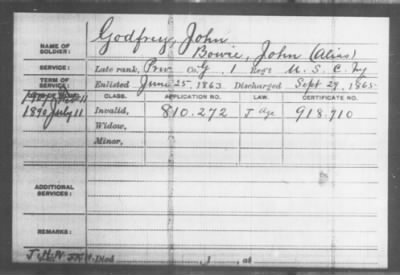 Godfrey, John
NAME OF SOLDIER: Bowie, John (Alias)
SERVICE: Late rank, Priv Co. G, 1 Reg't U. S. C. Inf
TERM OF SERVICE: Enlisted June 25, 1863 Discharged Sept 29, 1865
CLASS. APPLICATION NO. LAW. CERTIFICATE NO.
1890 July 11 Invalid, 810.272 J 918.710
Widow,
Minor,
ADDITIONAL SERVICES:
REMARKS:
Died , at